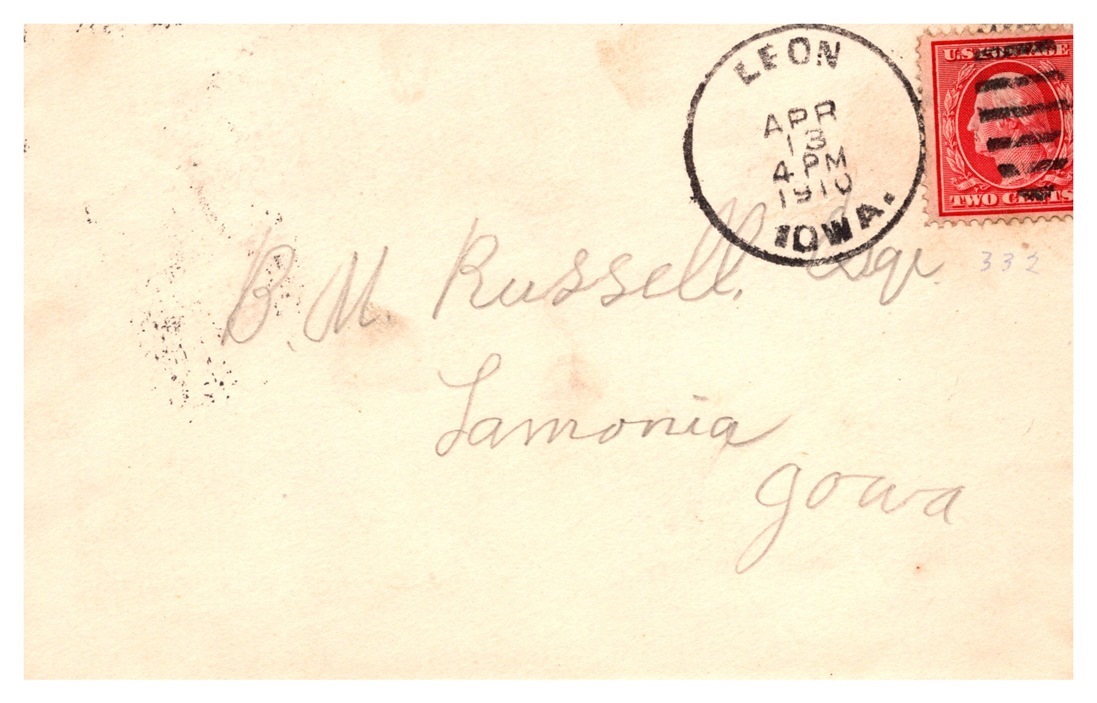 LEON
APR
13
4 PM
1910
IOWA.
U.S. POSTAGE
TWO CENTS
332
B. M. Russell, Esqr.
Lamonia
Iowa